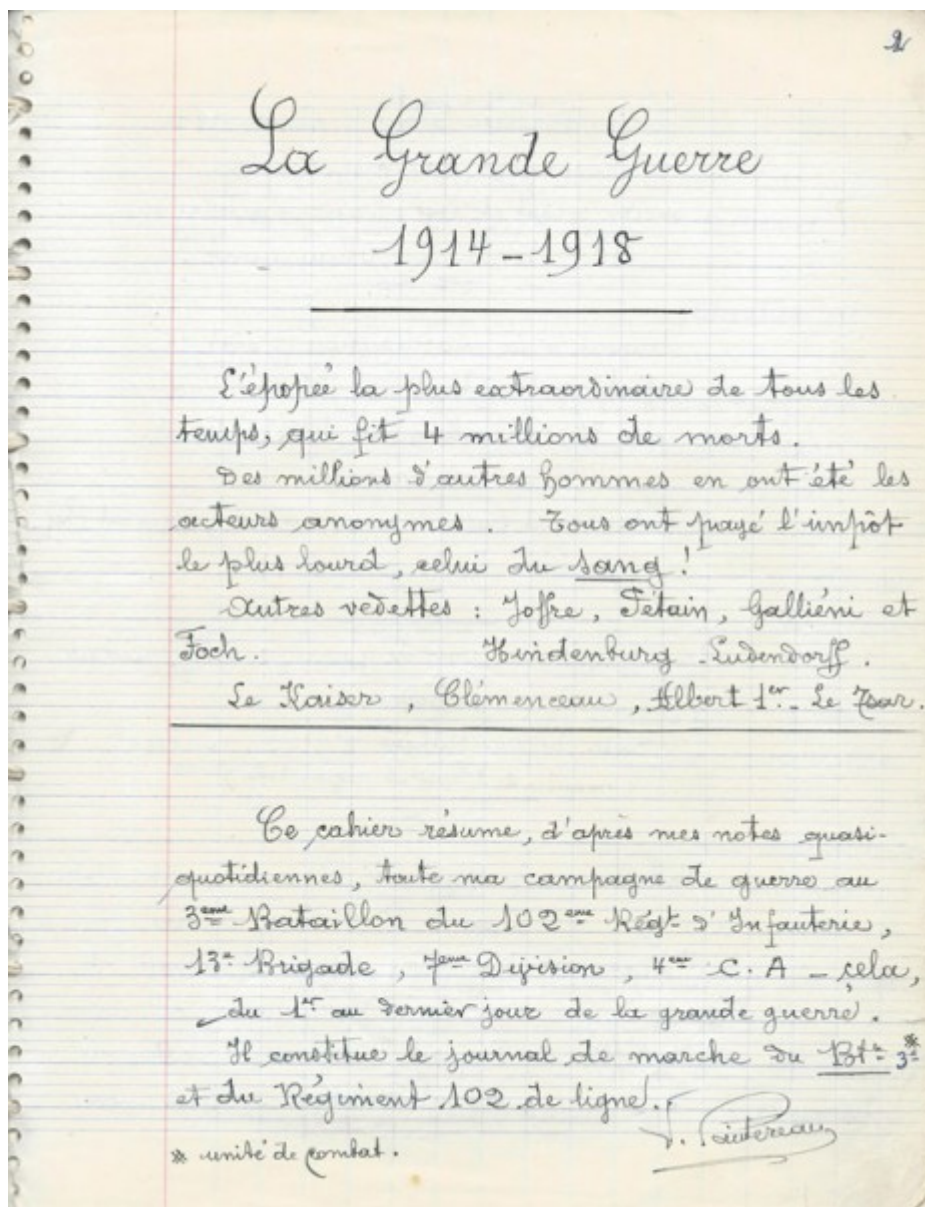 2
La Grande Guerre
1914-1918
L'épopée la plus extraordinaire de tous les
temps, qui fit 4 millions de morts.
Des millions d'autres hommes en ont été les
acteurs anonymes. Tous ont payé l'impôt
le plus lourd, celui du sang!
Autres vedettes : Joffre, Pétain, Galliéni et
Foch. Hindenburg - Ludendorff.
Le Kaiser, Clémenceau, Albert 1er - Le Tsar.
Ce cahier résume, d'après mes notes quasi-
quotidiennes, toute ma campagne de guerre au
3ème Bataillon du 102ème Régt d'Infanterie,
13e Brigade, 7ème Division, 4ème C.A - cela,
du 1er au dernier jour de la grande guerre.
Il constitue le journal de marche du Btn 3e *
et du Régiment 102 de ligne.
* unité de combat.